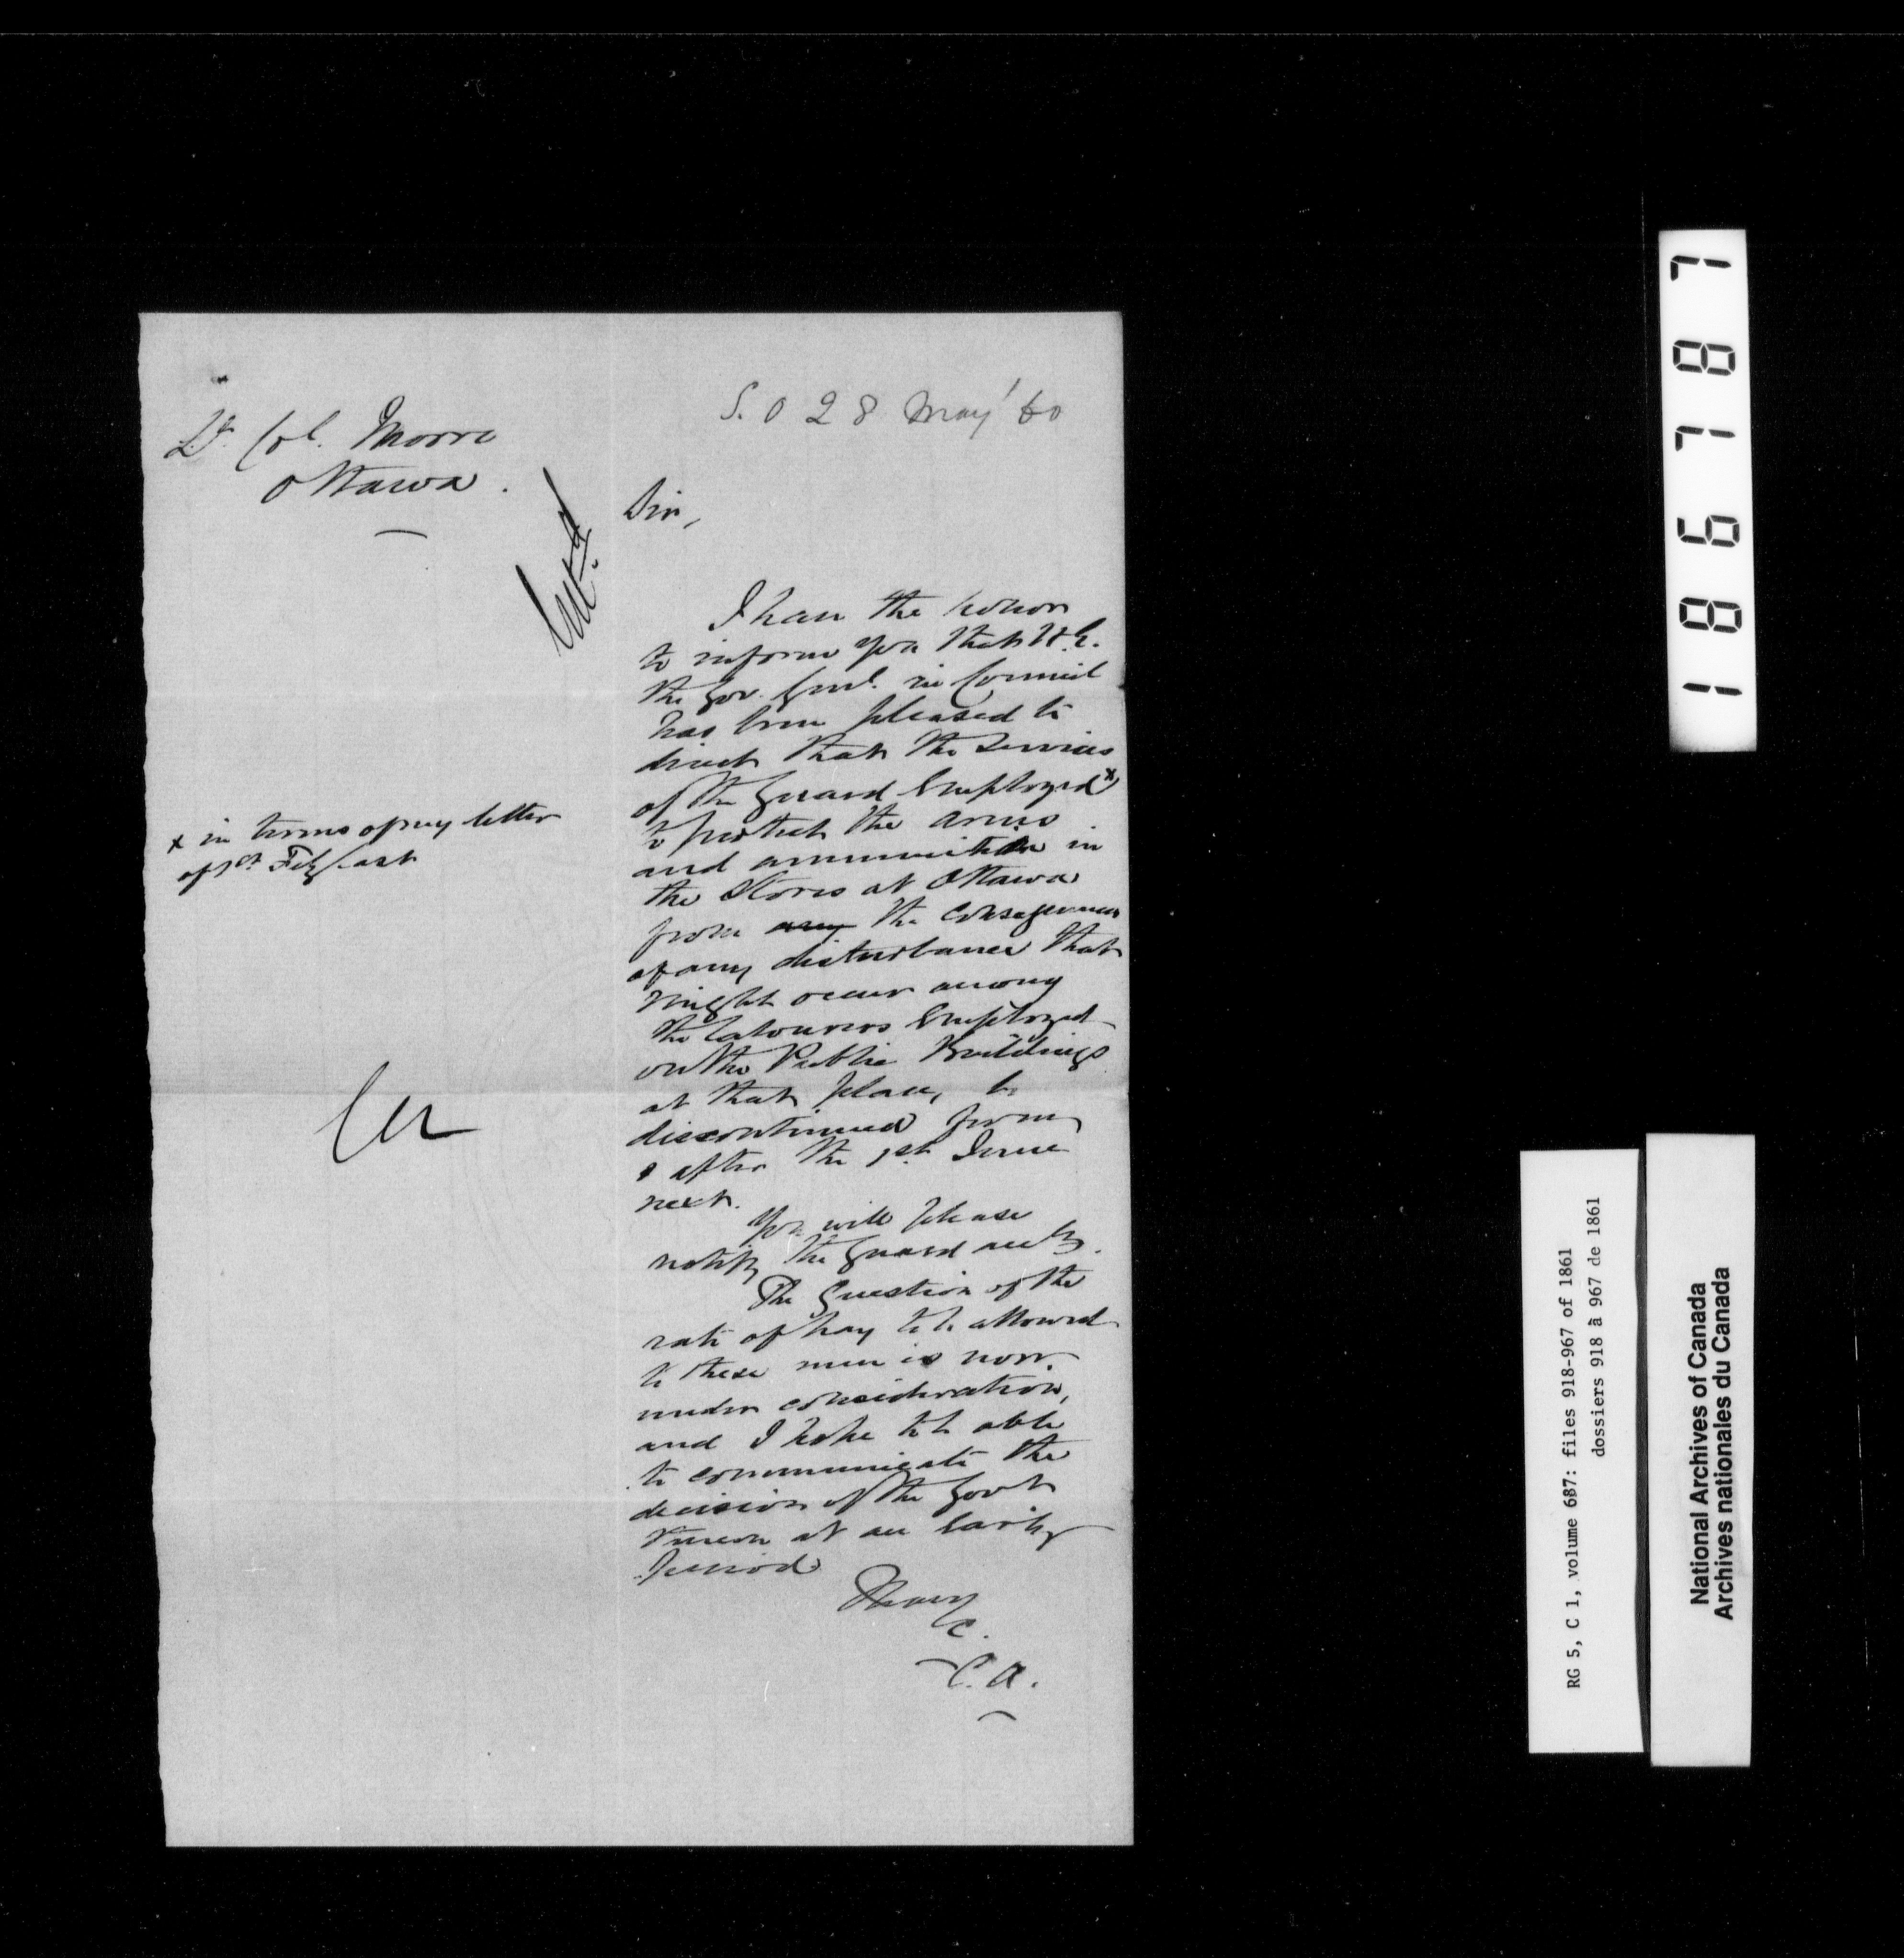 S.O 28 May '60
Lt. Col. Morro
Ottawa.
Entd.
Sir,
I have the honor
to inform you that H.E.
the Gov. Genl. in Council
has been pleased to
direct that the services
of the Guard employed x
to protect the arms
and ammunition in
the Stores at Ottawa
from any the consequences
of any disturbance that
might occur among
the labourers employed
on the Public Buildings
at that place, be
discontinued from
& after the 1st June
next.
x in terms of my letter
of 1st Feby last
You will please
notify the Guard accly.
The Question of the
rate of pay to be allowed
to these men is now
under consideration,
and I hope to be able
to communicate the
decision of the Govt
thereon at an early
period
I have
&c.
C.A.
186787
RG 5, C 1, volume 687: files 918-967 of 1861
dossiers 918 à 967 de 1861
National Archives of Canada
Archives nationales du Canada